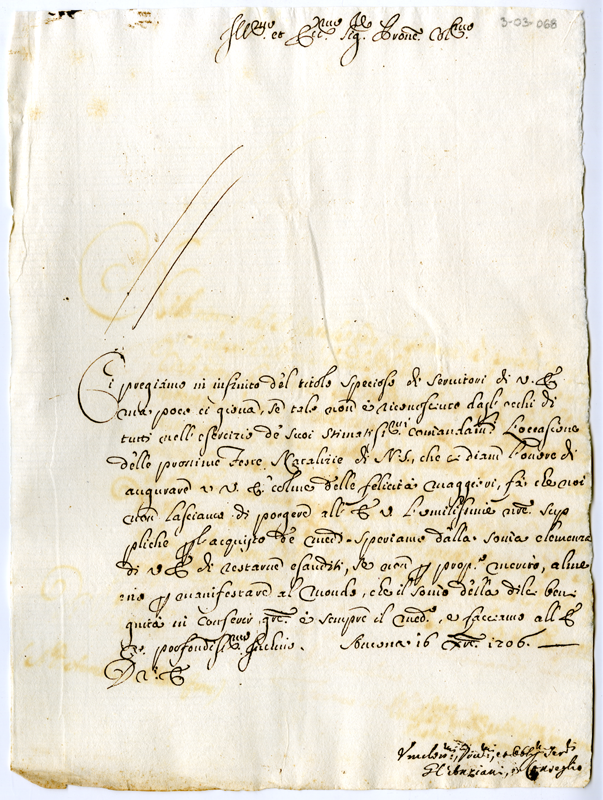 3-03-068
Ill.mo et Ecc.mo Sig. Prone Col.mo
Ci pregiamo in infinito del titolo specioso di servitori di V. E.
ma poco ci giova, se tale non è riconosciuto dagl'occhi di
tutti nell'esercizio de suoi stimatis.mi comandam.ti L'occasione
delle prossime Feste Natalizie di N.S., che ci dian l'onore di
augurare a V. E. colme delle felicità maggiori, fa che noi
non lasciamo di porgere all'E. V. l'umilissime nre sup
pliche p l'acquisto de med. speriamo dalla somma clemenza
di V. E. di restarne esauditi, se non p prop.o merito, alme
no p manifestare al Mondo, che il sommo della di lei beni
gnità in conferir gre è sempre il med.o, e facciamo all'E.
V. profondiss.mo inchino. Ancona 16 Xre 1706.
D. V. E.
Umiliss.mi Dev.mi, et Obb.mi Ser.ri
Gl'Anziani, e Consiglio